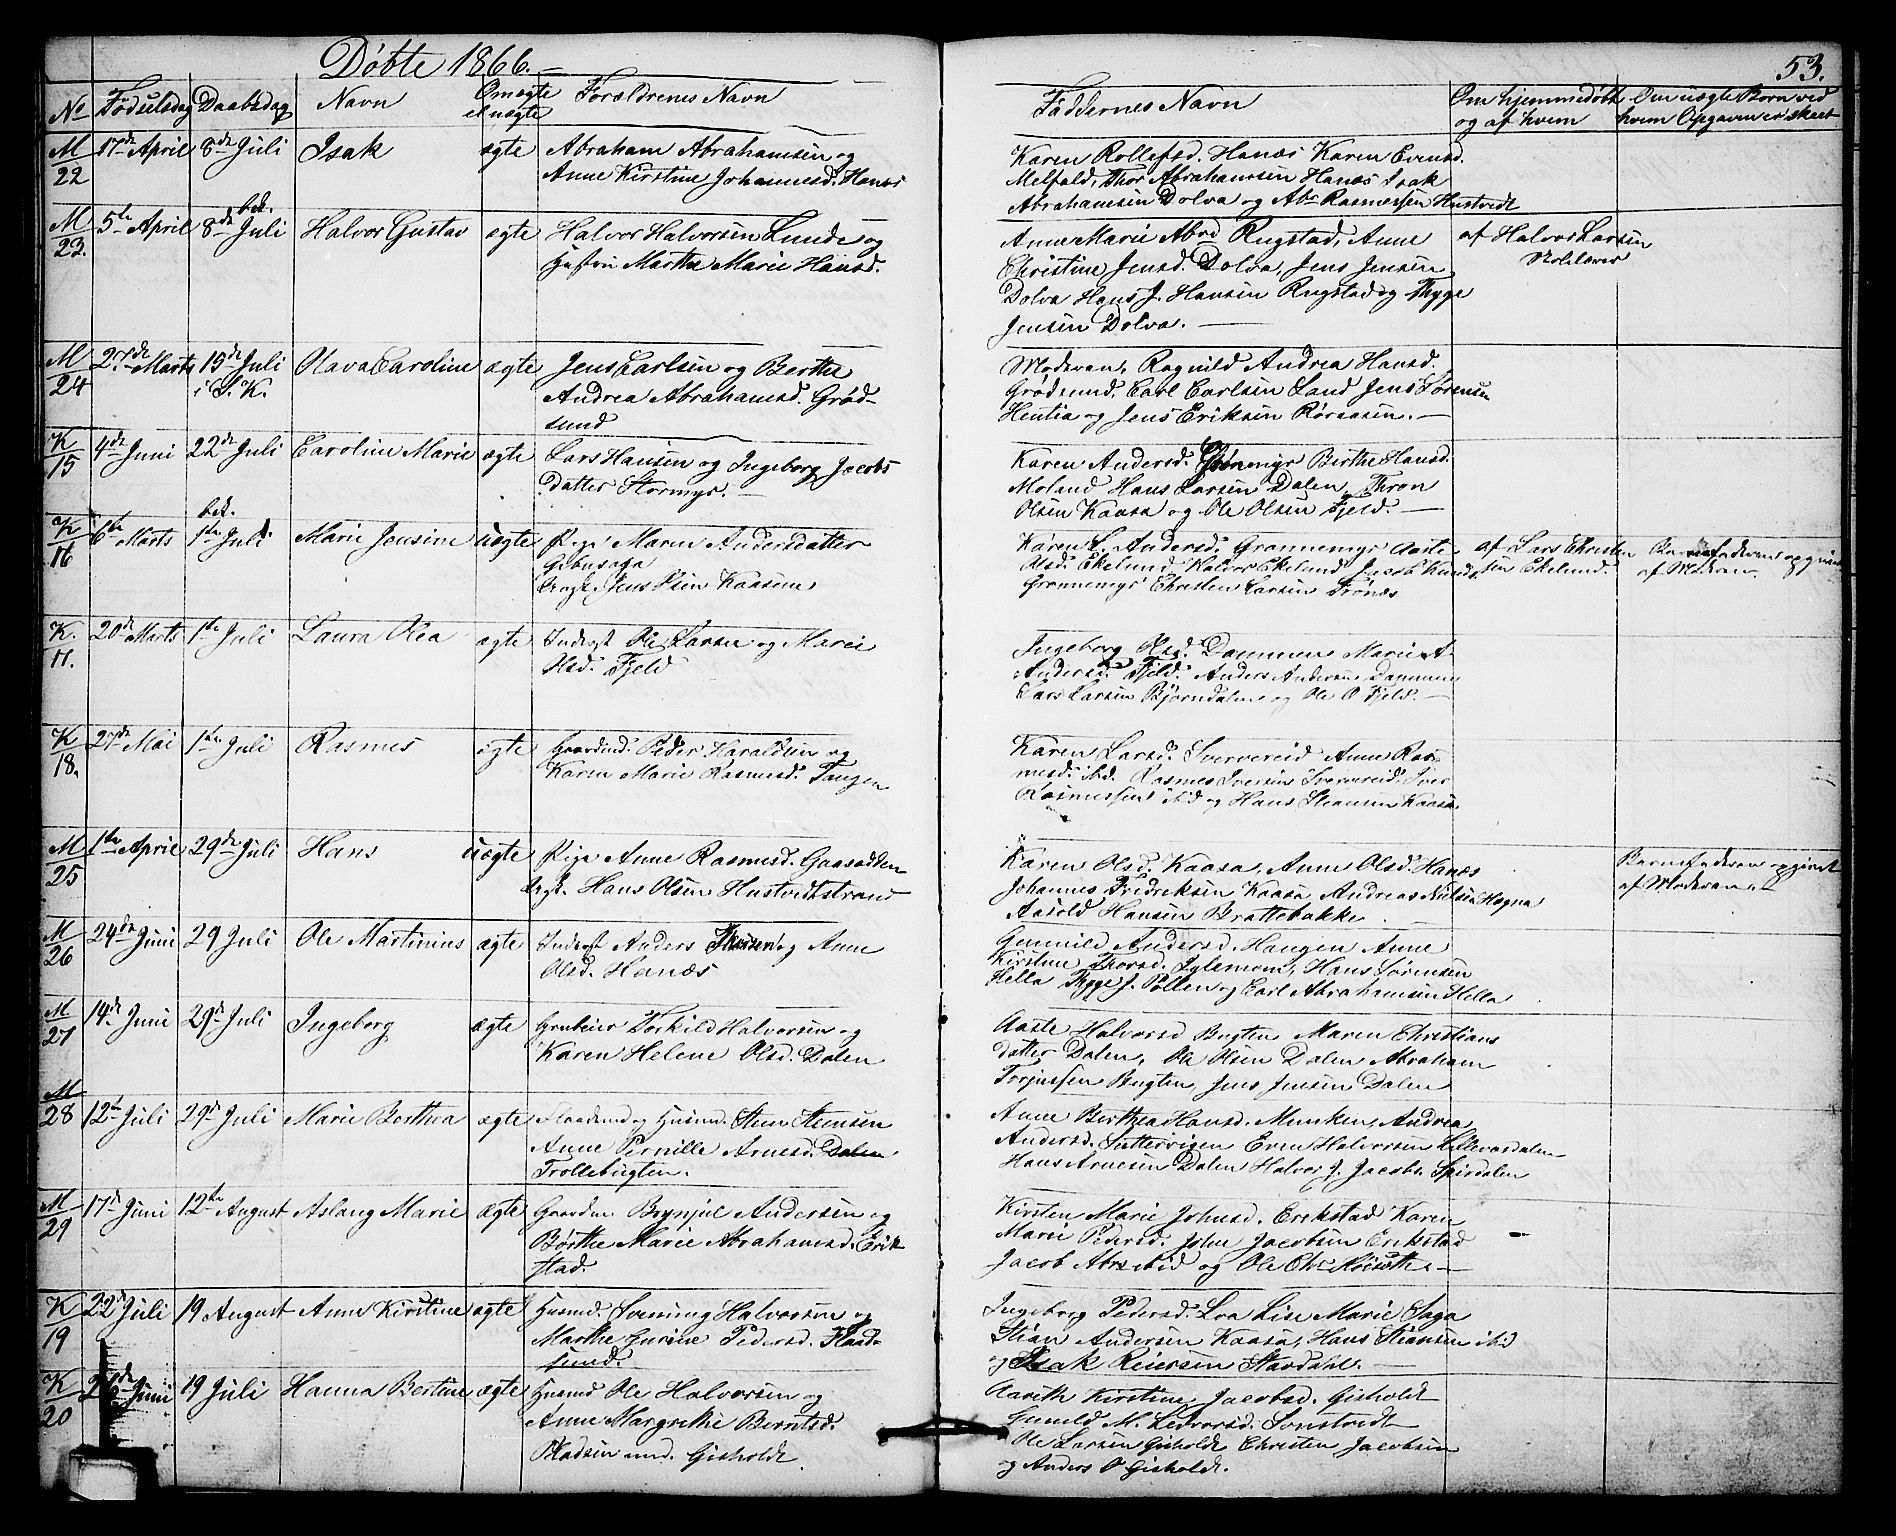 Døbte 1866.
53.
No Fødselsdag Daabsdag Navn Om ægte el uægte Forældrenes Navn Faddernes Navn Om hjemmedøbt og af hvem Om uægte Børn ved hvem Opgaven er skeet
M 22 17de April 8de Juli Isak ægte Abraham Abrahamsen og
Anne Kirstine Johannesd. Hanæs
Karen Rollefsd. Hanæs Karen Evensd.
Melfald, Thor Abrahamsen Hanæs Isak
Abrahamsen Dolva og Abr Rasmussen Hustvedt
M 23. 5te April bek. 8de Juli Halvor Gustav ægte Halvor Halvorsen Lunde og
Hustru Marthe Marie Hansd.
Anne Marie Abrd Rugstad, Anne
Christine Jensd. Dolva, Jens Jensen
Dolva Hans J. Hansen Rugstad og Thyge
Jensen Dolva.
af Halvor Larsen
M 24 27de Marts 15de Juli i S. K. Olava Caroline ægte Jens Carlsen og Berthe
Andrea Abrahamsd. Grød-
sund
Moderen, Ragnild Andrea Hansd.
Grødsund. Carl Carlsen Land Jens Sørensen
og Jens Eriksen Rørsasen.
K 15 4de Juni 22de Juli Caroline Marie ægte Lars Hansen og Ingeborg Jacobs
Datter Stormyr.
Karen Andersd. Grønmyr Birthe Hansd.
Moland Hans Larsen Dalen, Thron
Olsen Kaasa og Ole Olsen Fjeld.
K 16 6te Marts bek. 1te Juli Marie Jensine uægte Pige Maren Andersdatter
Jens Olsen Kaasene
Karen L. Andersd. Grønnemyr Aaste
Olsd. Ekelund Halvor Ekelund Jacob Knuds.
Grønnemyr Christen Larsen Trønæs
af Lars Christen
sen Ekelund.
Barnefaderen opgivet
af Moderen.
K. 17. 20de Marts 1te Juli Laura Olea ægte Inderst Ole Larsen og Maren
Olsd. Fjeld
Ingeborg Olsd. Dammen Marie A.
Andersd. Fjeld. Anders Andersen Dammen
Lars Larsen Bjørndalen og Ole O Fjeld.
K 18. 27de Mai 1te Juli Rasmus ægte Gaardmd. Peder Haraldsen og
Karen Marie Rasmusd. Tangen
Karen Larsd. Sververeid Anne Ras-
musd. ibd. Rasmus Iversen Sververeid. Iver
Rasmussen ibid og Hans Steansen Kaasa
M 25 1te April 29de Juli Hans uægte Pige Anne Rasmusd. Gaasodden
Hans Olsen Hustvedtstrand
Karen Olsd. Kaasa, Anne Olsd. Hanæs
Johannes Fredriksen Kaasa, Andreas Nielsen Hogna
Hansen Brattebakke
Barnefaderen opgivet
af Moderen.
M 26 24de Juni 29 Juli Ole Martinius ægte Inderst Anders og Anne
Olsd. Hanæs
Gunnild Andersd. Haugen Anne
Kirstine Thorsd. Hans Sørensen
Hella Thyge J. Pollen og Carl Abrahamsen Hella
M 27 14de Juni 29de Juli Ingeborg ægte Grubeier Torkild Halvorsen og
Karen Helene Olsd. Dalen
Aaste Halvorsd Bugten Maren Christians
datter Dalen, Ole Olsen Dalen Abraham
Torjussen Bugten, Jens Jensen Dalen
M 28 12te Juli 29de Juli Marie Berthea ægte Steen Steensen
Anne Pernille Arnesd. Dalen
Trollebugten.
Anne Berthea Hansd. Munken, Andrea
Andersd. Even Halvorsen Lillevardalen
Hans Arnesen Dalen Halvor J. Jacobs. Spirdalen
M 29 17de Juni 12te August Aslaug Marie ægte Gaardm. Brynjul Andersen og
Børthe Marie Abrahamsd. Erik
stad.
Kirsten Marie Johnsd. Erikstad Karen
Marie Pedersd. John Jacobsen Erikstad
Jacob Abrs ibid og Ole Chr
K 19 22de Juli 19 August Anne Kirstine ægte Husmd. Svenung Halvorsen og
Marthe Gurine Pedersd. Flaad-
sund.
Ingeborg Pedersd. Lva Lise Marie Saga
Stian Andersen Kaasa, Hans Steansen ibid
og Isak Reiersen Stavdahl.
K 20 26de Juni 19 Juli Hanna Bertine ægte Husmd Ole Halvorsen og
Anne Margrethe Berntsd.
Pladsen und. Gisholdt
Aarith Kirstine Jacobsd. Gisholdt
Gunild M. Ledvorsd. Tvedt
Ole Larsen Gisholdt Christen Jacobsen
og Anders O Gisholdt.